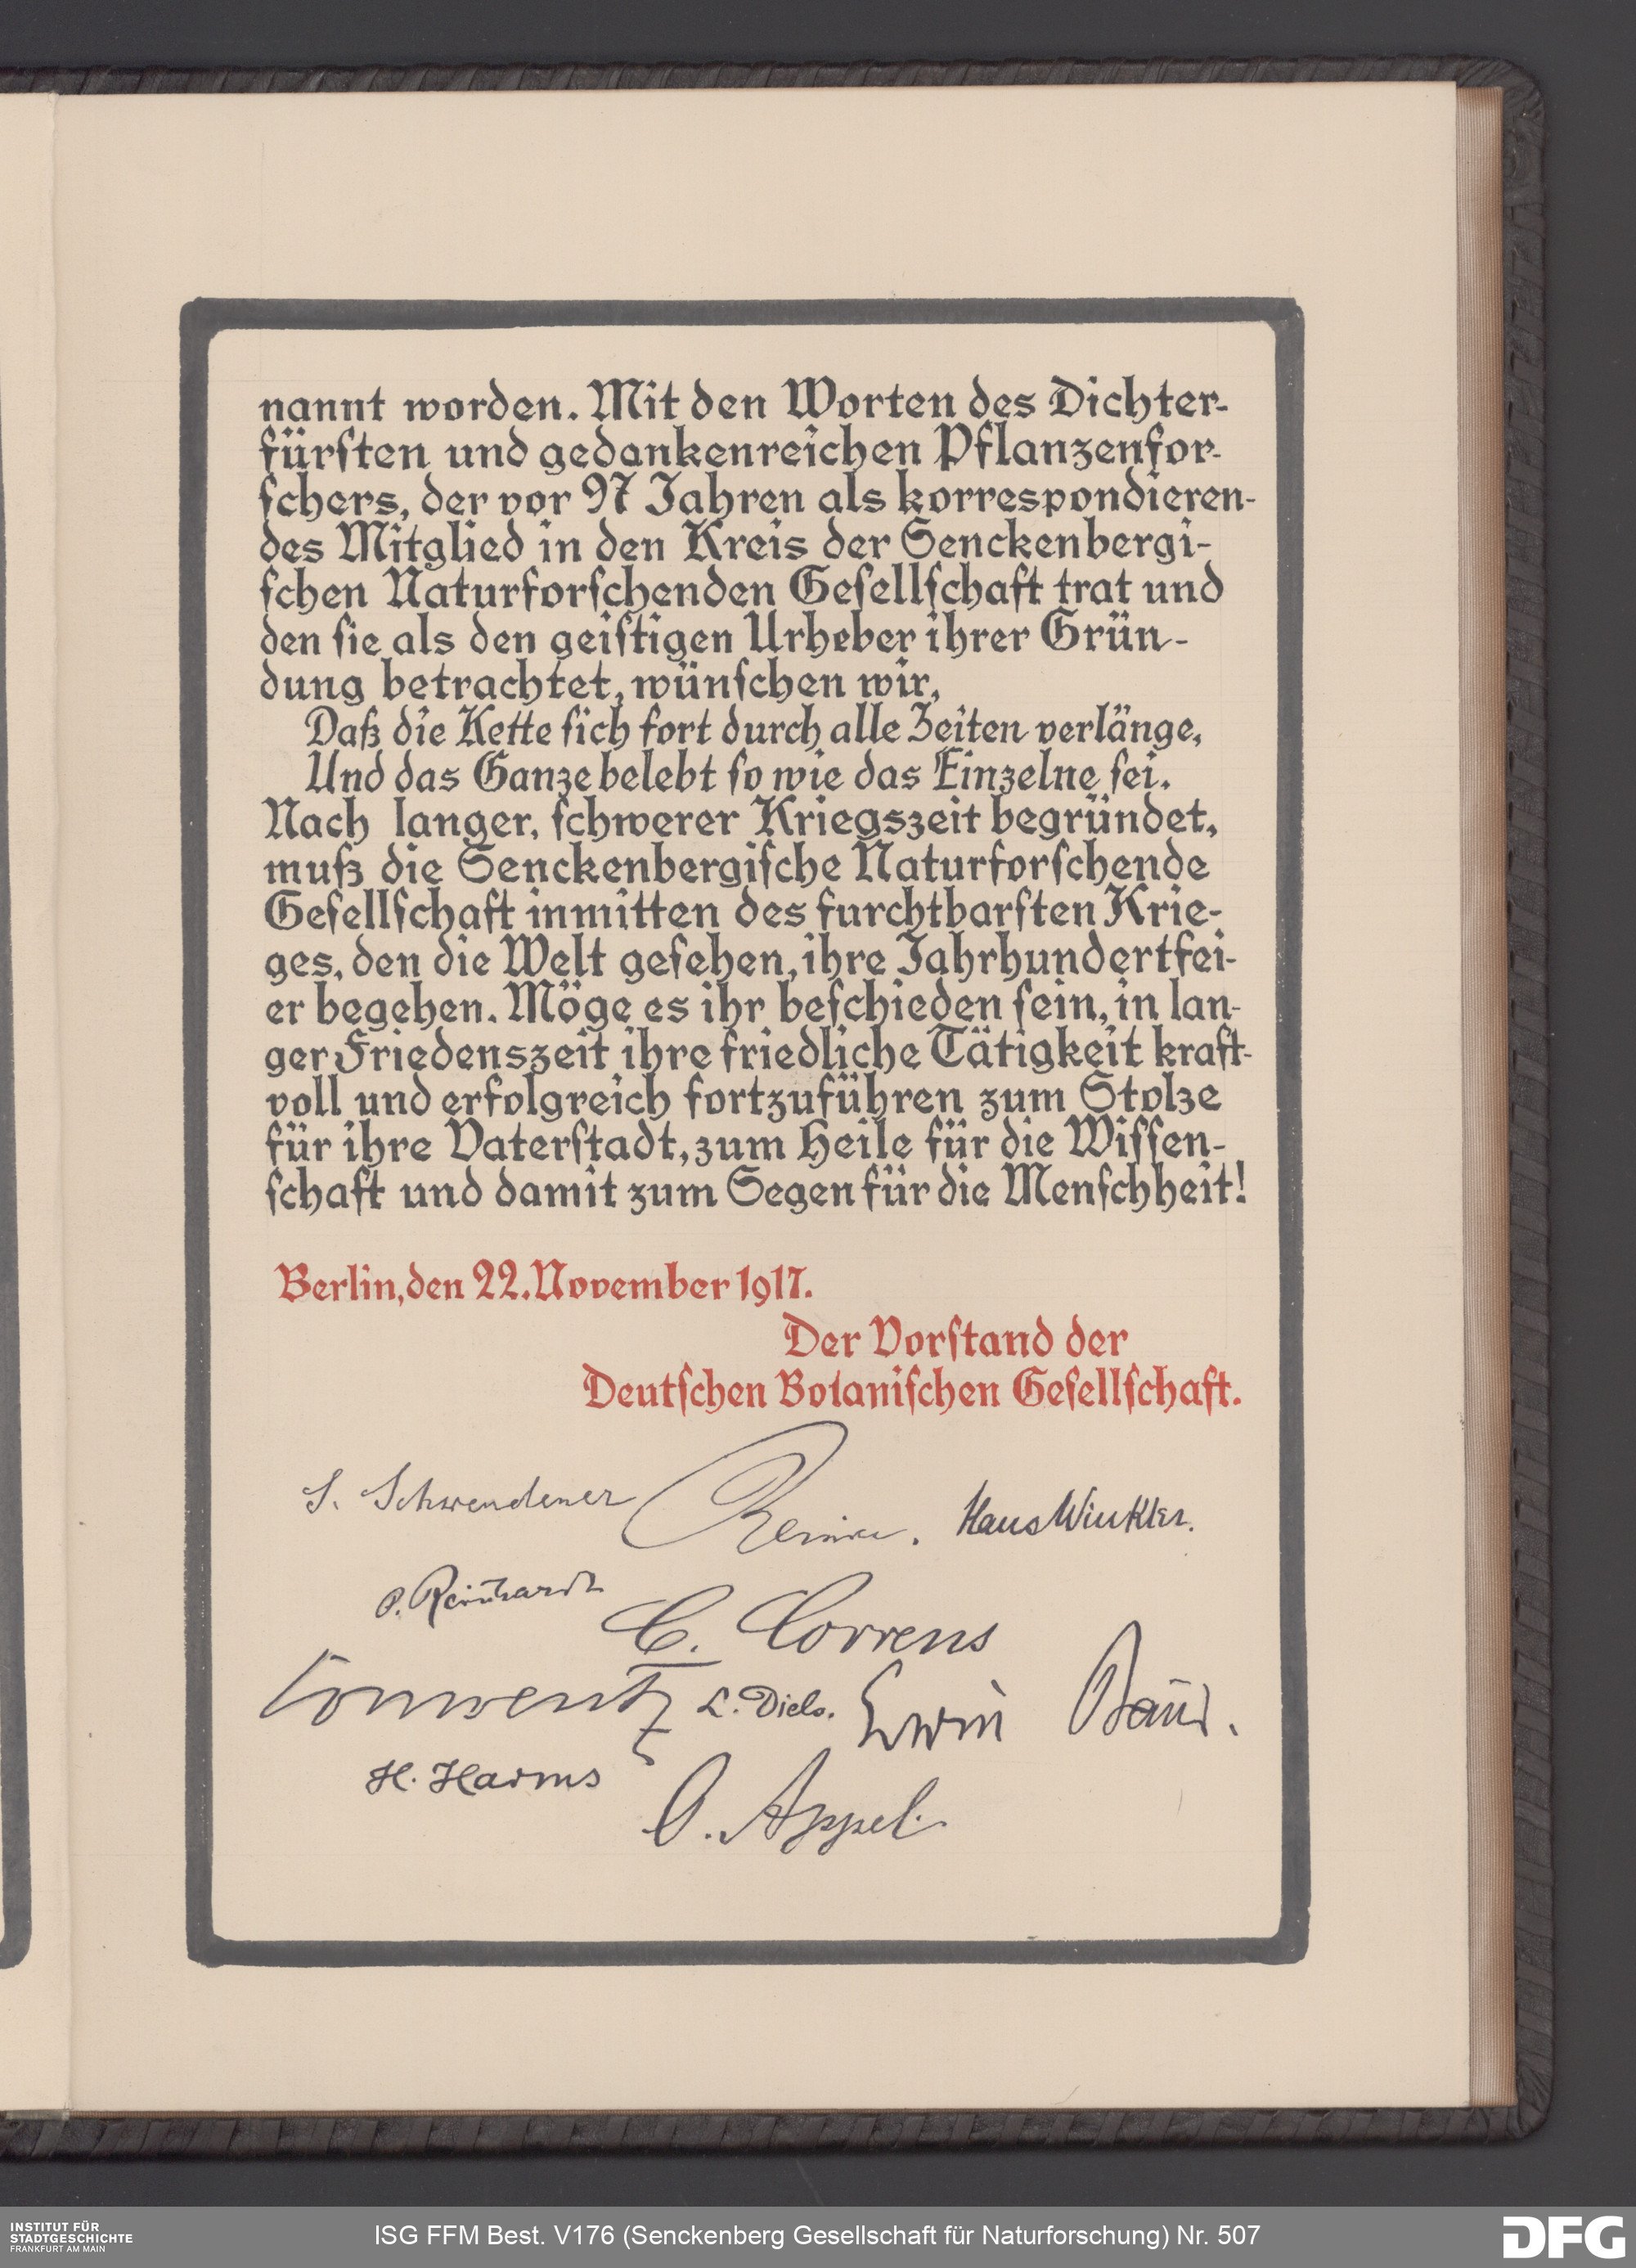 nannt worden. Mit den Worten des Dichter-
fürſten und gedankenreichen Pflanzenfor-
ſchers, der vor 97 Jahren als korrespondieren-
des Mitglied in den Kreis der Senckenbergi-
ſchen Naturforſchenden Geſellſchaft trat und
den ſie als den geiſtigen Urheber ihrer Grün-
dung betrachtet, wünſchen wir,
Daß die Kette ſich fort durch alle Zeiten verlänge,
Und das Ganze belebt ſo wie das Einzelne ſei.
Nach langer, ſchwerer Kriegszeit begründet,
muß die Senckenbergiſche Naturforſchende
Geſellſchaft inmitten des furchtbarſten Krie-
ges, den die Welt geſehen, ihre Jahrhundertfei-
er begehen. Möge es ihr beſchieden ſein, in lan-
ger Friedenszeit ihre friedliche Tätigkeit kraft-
voll und erfolgreich fortzuführen zum Stolze
für ihre Vaterſtadt, zum Heile für die Wiſſen-
ſchaft und damit zum Segen für die Menſchheit!
Berlin, den 22. November 1917.
Der Vorſtand der
Deutſchen Botaniſchen Geſellſchaft.
S. Schwendener Reinke. Hans Winkler.
O. Reinhardt
C. Correns
Conwentz L. Diels. Erwin Baur.
H. Harms
O. Appel.
INSTITUT FÜR
STADTGESCHICHTE
FRANKFURT AM MAIN
ISG FFM Best. V176 (Senckenberg Gesellschaft für Naturforschung) Nr. 507
DFG